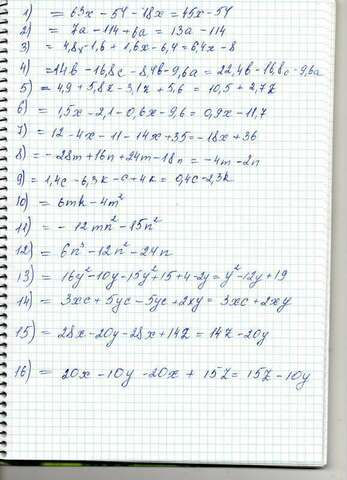 1) = 63x - 54 - 18x = 45x - 54
2) = 7a - 114 + 6a = 13a - 114
3) = 4,8x - 1,6 + 1,6x - 6,4 = 6,4x - 8
4) = 14в - 16,8c - 8,4в - 9,6a = 22,4в - 16,8c - 9,6a
5) = 4,9 + 5,8z - 3,1z + 5,6 = 10,5 + 2,7z
6) = 1,5x - 2,1 - 0,6x - 9,6 = 0,9x - 11,7
7) = 12 - 4x - 11 - 14x + 35 = -18x + 36
8) = -28m + 16n + 24m - 18n = -4m - 2n
9) = 1,4c - 6,3k - c + 4k = 0,4c - 2,3k
10) = 6mk - 4m²
11) = -12mn² - 15n²
12) = 6n³ - 12n² - 24n
13) = 16y² - 10y - 15y² + 15 + 4 - 2y = y² - 12y + 19
14) = 3xc + 5yc - 5yc + 2xy = 3xc + 2xy
15) = 28x - 20y - 28x + 14z = 14z - 20y
16) = 20x - 10y - 20x + 15z = 15z - 10y